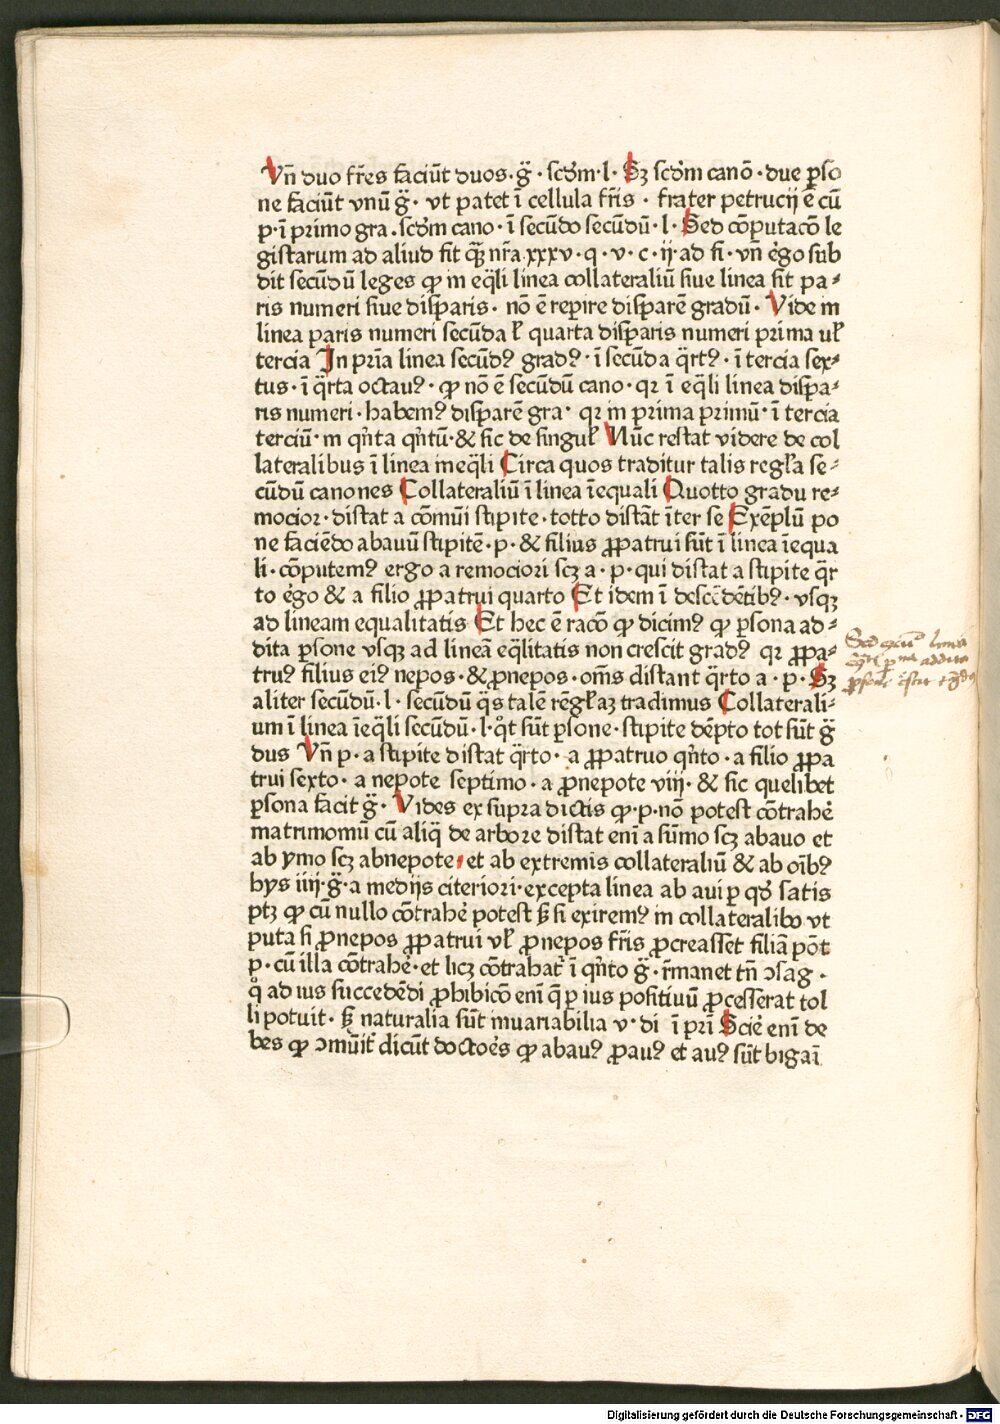 Vn̄ duo fr̄es faciūt duos·g̈· scd̓m·l· Sꝫ scd̓m canō·due ꝑſo
ne faciūt vnū g̈· vt patet ī cellula fr̄is · frater petrucij ē cū
p·ī primo gra.scd̓m cano·ī secūdo secūdū·l· Sed cōputacō le
gistarum ad aliud fit q̄ꝫ nr̄a.xxxv·q·v·c·ij·ad fi·vn̄ ėgo sub
dit secūdū leges ꝙ in eq̈li linea collateraliū siue linea sit pa⸗
ris numeri siue disparis· nō ē reꝑire disparē gradū· Vide in
linea paris numeri secūda ł quarta disparis numeri prima uł
tercia In pria linea secūdꝰ gradꝰ·ī secūda q̈rtꝰ·ī tercia sex⸗
tus·ī q̈rta octauꝰ·ꝙ nō ē secūdū cano·qr ī eq̈li linea dispa⸗
ris numeri·habemꝰ disparē gra· qr in prima primū·ī tercia
terciū·in qn̄ta qn̄tū·& sic de singuł Nūc restat videre de col
lateralibus ī linea ineq̈li Circa quos traditur talis regła se⸗
cūdū canones Collateraliū ī linea īequali Quotto gradu re⸗
mocior·distat a cōmūi stipite·totto distāt īter se Exēplū po
ne faciēdo abauū stipitē·p·& filius ꝓpatrui sūt ī linea īequa
li·cōputemꝰ ergo a remociori scꝫ a·p·qui distat a stipite q̈r
to ėgo & a filio ꝓpatrui quarto Et idem ī descēdētibꝰ·vsqꝫ
ad lineam equalitatis Et hec ē racō ꝙ dicimꝰ ꝙ ꝑsona ad⸗
dita ꝑsone vsqꝫ ad lineā eq̈litatis non crescit gradꝰ qr ꝓpa⸗
truꝰ filius eiꝰ nepos·&ꝓnepos·om̄s distant q̈rto a·p· Sꝫ
aliter secūdū·l·secūdū q̈s talē rēgłaꝫ tradimus Collaterali⸗
um ī linea īeq̈li secūdū·l·qͦt sūt ꝑsone·stipite dēpto tot sūt g̈
dus Vn̄ p·a stipite distat q̈rto·a ꝓpatruo qn̄to·a filio ꝓpa
trui sexto·a nepote septimo·a ꝓnepote viij·& sic quelibet
ꝑsona facit g̈· Vides ex supra dictis ꝙ·p·nō potest cōtrahė
matrimoniū cū aliq̈ de arbore distat enī a sūmo scꝫ abauo et
ab ymo scꝫ abnepote·et ab extremis collateraliū & ab oībꝰ
hys iiij·g̈·a medijs citeriori·excepta linea ab aui ꝑ qd̓ satis
ptꝫ ꝙ cū nullo cōtrahė potest ꝭ si exiremꝰ in collateralibo vt
puta si ꝓnepos ꝓpatrui vł ꝓnepos fr̄is ꝓcreasset filiā pōt
p·cū illa cōtrahė·et licꝫ cōtrahat̓ ī qn̄to g̈·r̄manet tn̄ ɔsag·
q̊ ad ius succedēdi ꝓhibicō enī q̄ ꝑ ius positiuū ꝓcesserat tol
li potuit·ꝭ naturalia sūt inuariabilia v·di ī pri̅ Sciė enī de
bes ꝙ ɔmūit̓ dicūt doctoės ꝙ abauꝰ ꝓauꝰ et auꝰ sūt bigaī
Digitalisierung gefördert durch die Deutsche Forschungsgemeinschaft - DFG